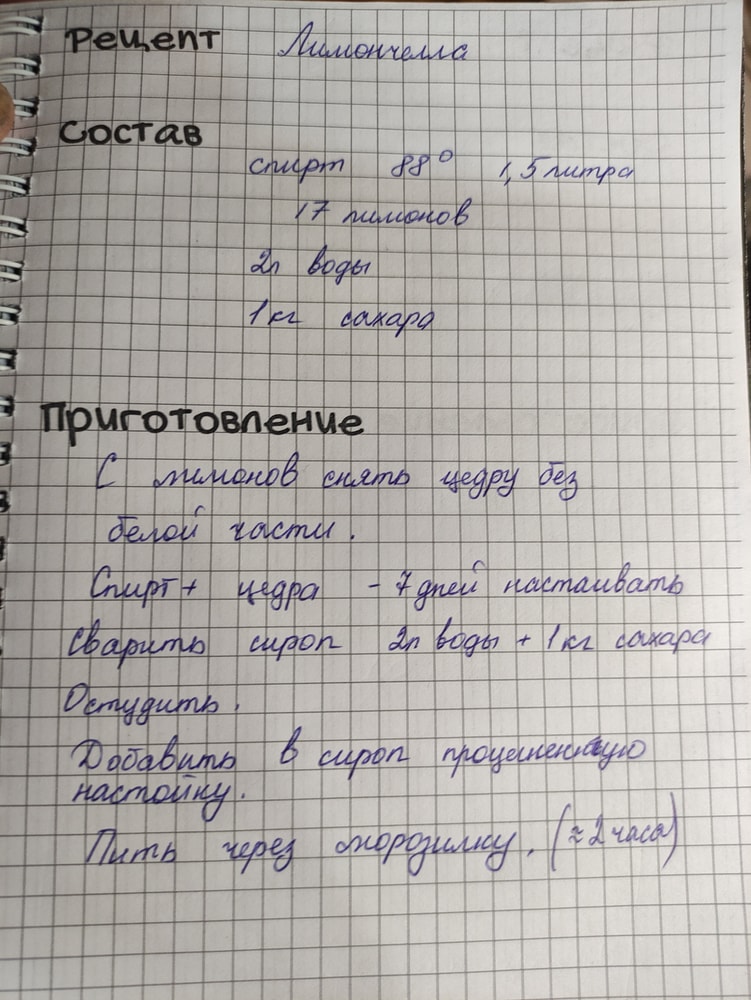 Рецепт Лимончелла
Состав
спирт 88° 1,5 литра
17 лимонов
2л воды
1кг сахара
Приготовление
С лимонов снять цедру без
белой части.
Спирт + цедра - 7 дней настаивать
Сварить сироп 2л воды + 1кг сахара
Остудить.
Добавить в сироп процеженную
настойку.
Пить через морозилку. (≈2 часа)